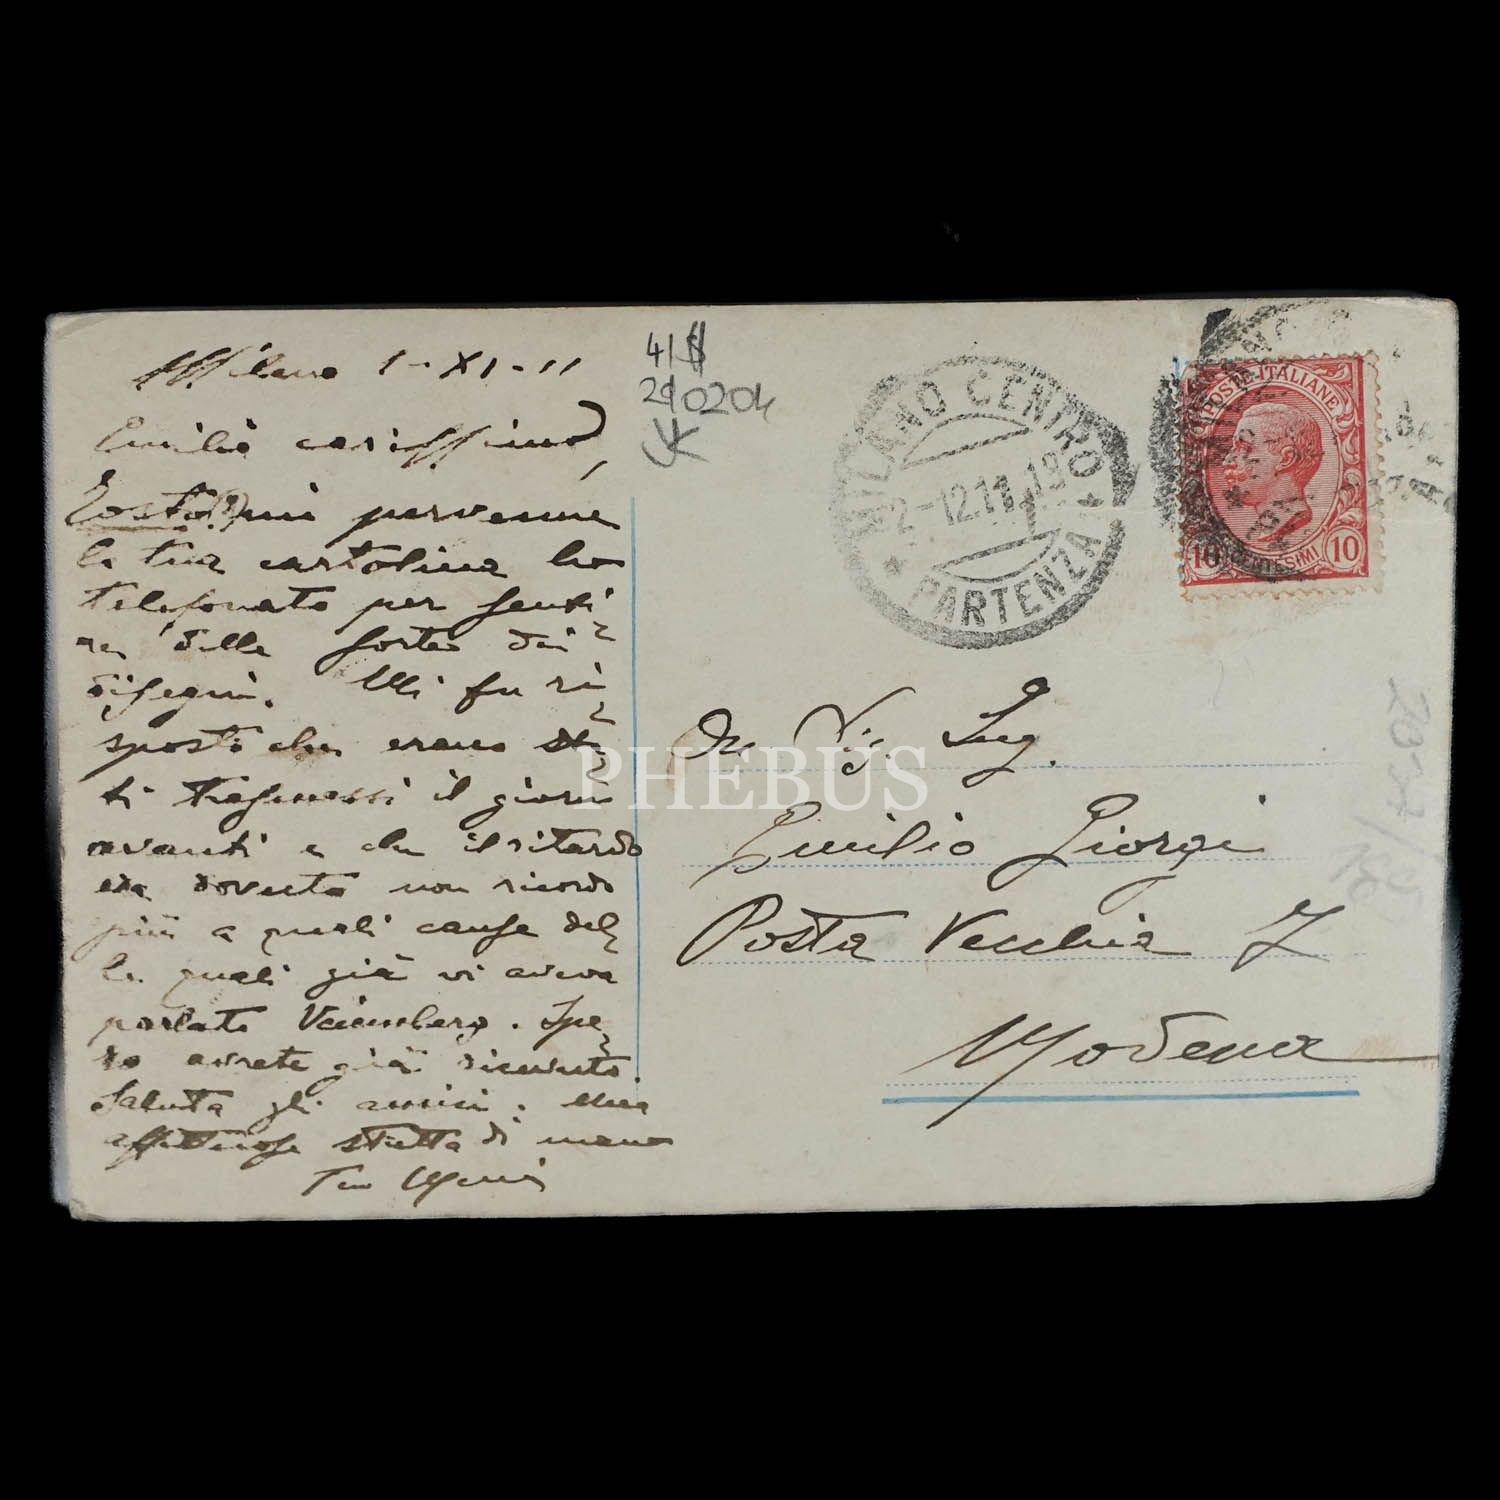 Milano 1-XI-11
Emilio carissimo,
Tosto(?) mi pervenne
la tua cartolina ho
telefonato per senti-
re delle sorte dei
disegni. Mi fu ri-
sposto che erano sta-
ti trasmessi il giorno
avanti e che il ritardo
era dovuto non ricordo
più a quali cause del-
le quali già vi aveva
parlato. Spe-
ro avrete già ricevuto.
Saluta gli amici. Una
affettuosa stretta di mano
Tuo
41
290204
MILANO CENTRO
2-12.11.19
* PARTENZA *
POSTE ITALIANE
10 CENTESIMI 10
PHEBUS
Sig. Ing.
Emilio Giorgi
Posta Vecchia 7
Modena